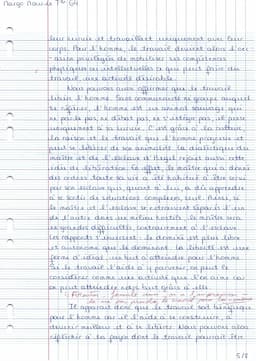 leur survie et travaillent uniquement avec leur
corps. Pour l'homme, le travail devient alors l'oc-
-casion privilégiée de mobiliser ses compétences
physiques ou intellectuelles ce que peut faire du
travail une activité désirable.
Nous pouvons aussi affirmer que le travail
libère l'homme. Sans communauté ni groupe auquel
se référer, l'homme est un animal sauvage qui
ne parle pas, ne débat pas, ne s'intègre pas, il pense
uniquement à sa survie. C'est grâce à la culture,
la raison et le travail que l'homme progresse et
peut se libérer de son animalité. La dialectique du
maître et de l'esclave d'Hegel rejoint aussi cette
idée de libération. En effet, le maître qui a donné
des ordres toute sa vie a été habitué à être servi
par son esclave qui, quant à lui, a dû apprendre
à se sortir de situations complexes, seul. Ainsi, si
le maître et l'esclave se retrouvent séparés l'un
de l'autre dans un milieu hostile, le maître sera
en grandes difficultés contrairement à l'esclave.
Les rapports s'inversent : le dominé est plus libre
et autonome que le dominant. La liberté est une
forme d'idéal, un but à atteindre pour l'homme
et le travail l'aide à y parvenir, on peut le
considérer comme une activité que l'on aime car
on peut atteindre notre but grâce à elle.
Il apparaît donc que le travail soit bénéfique
pour l'homme car il l'aide à se construire, à
devenir meilleur et à se libérer. Nous pouvons alors
réfléchir à la façon dont le travail pourrait être
5/8